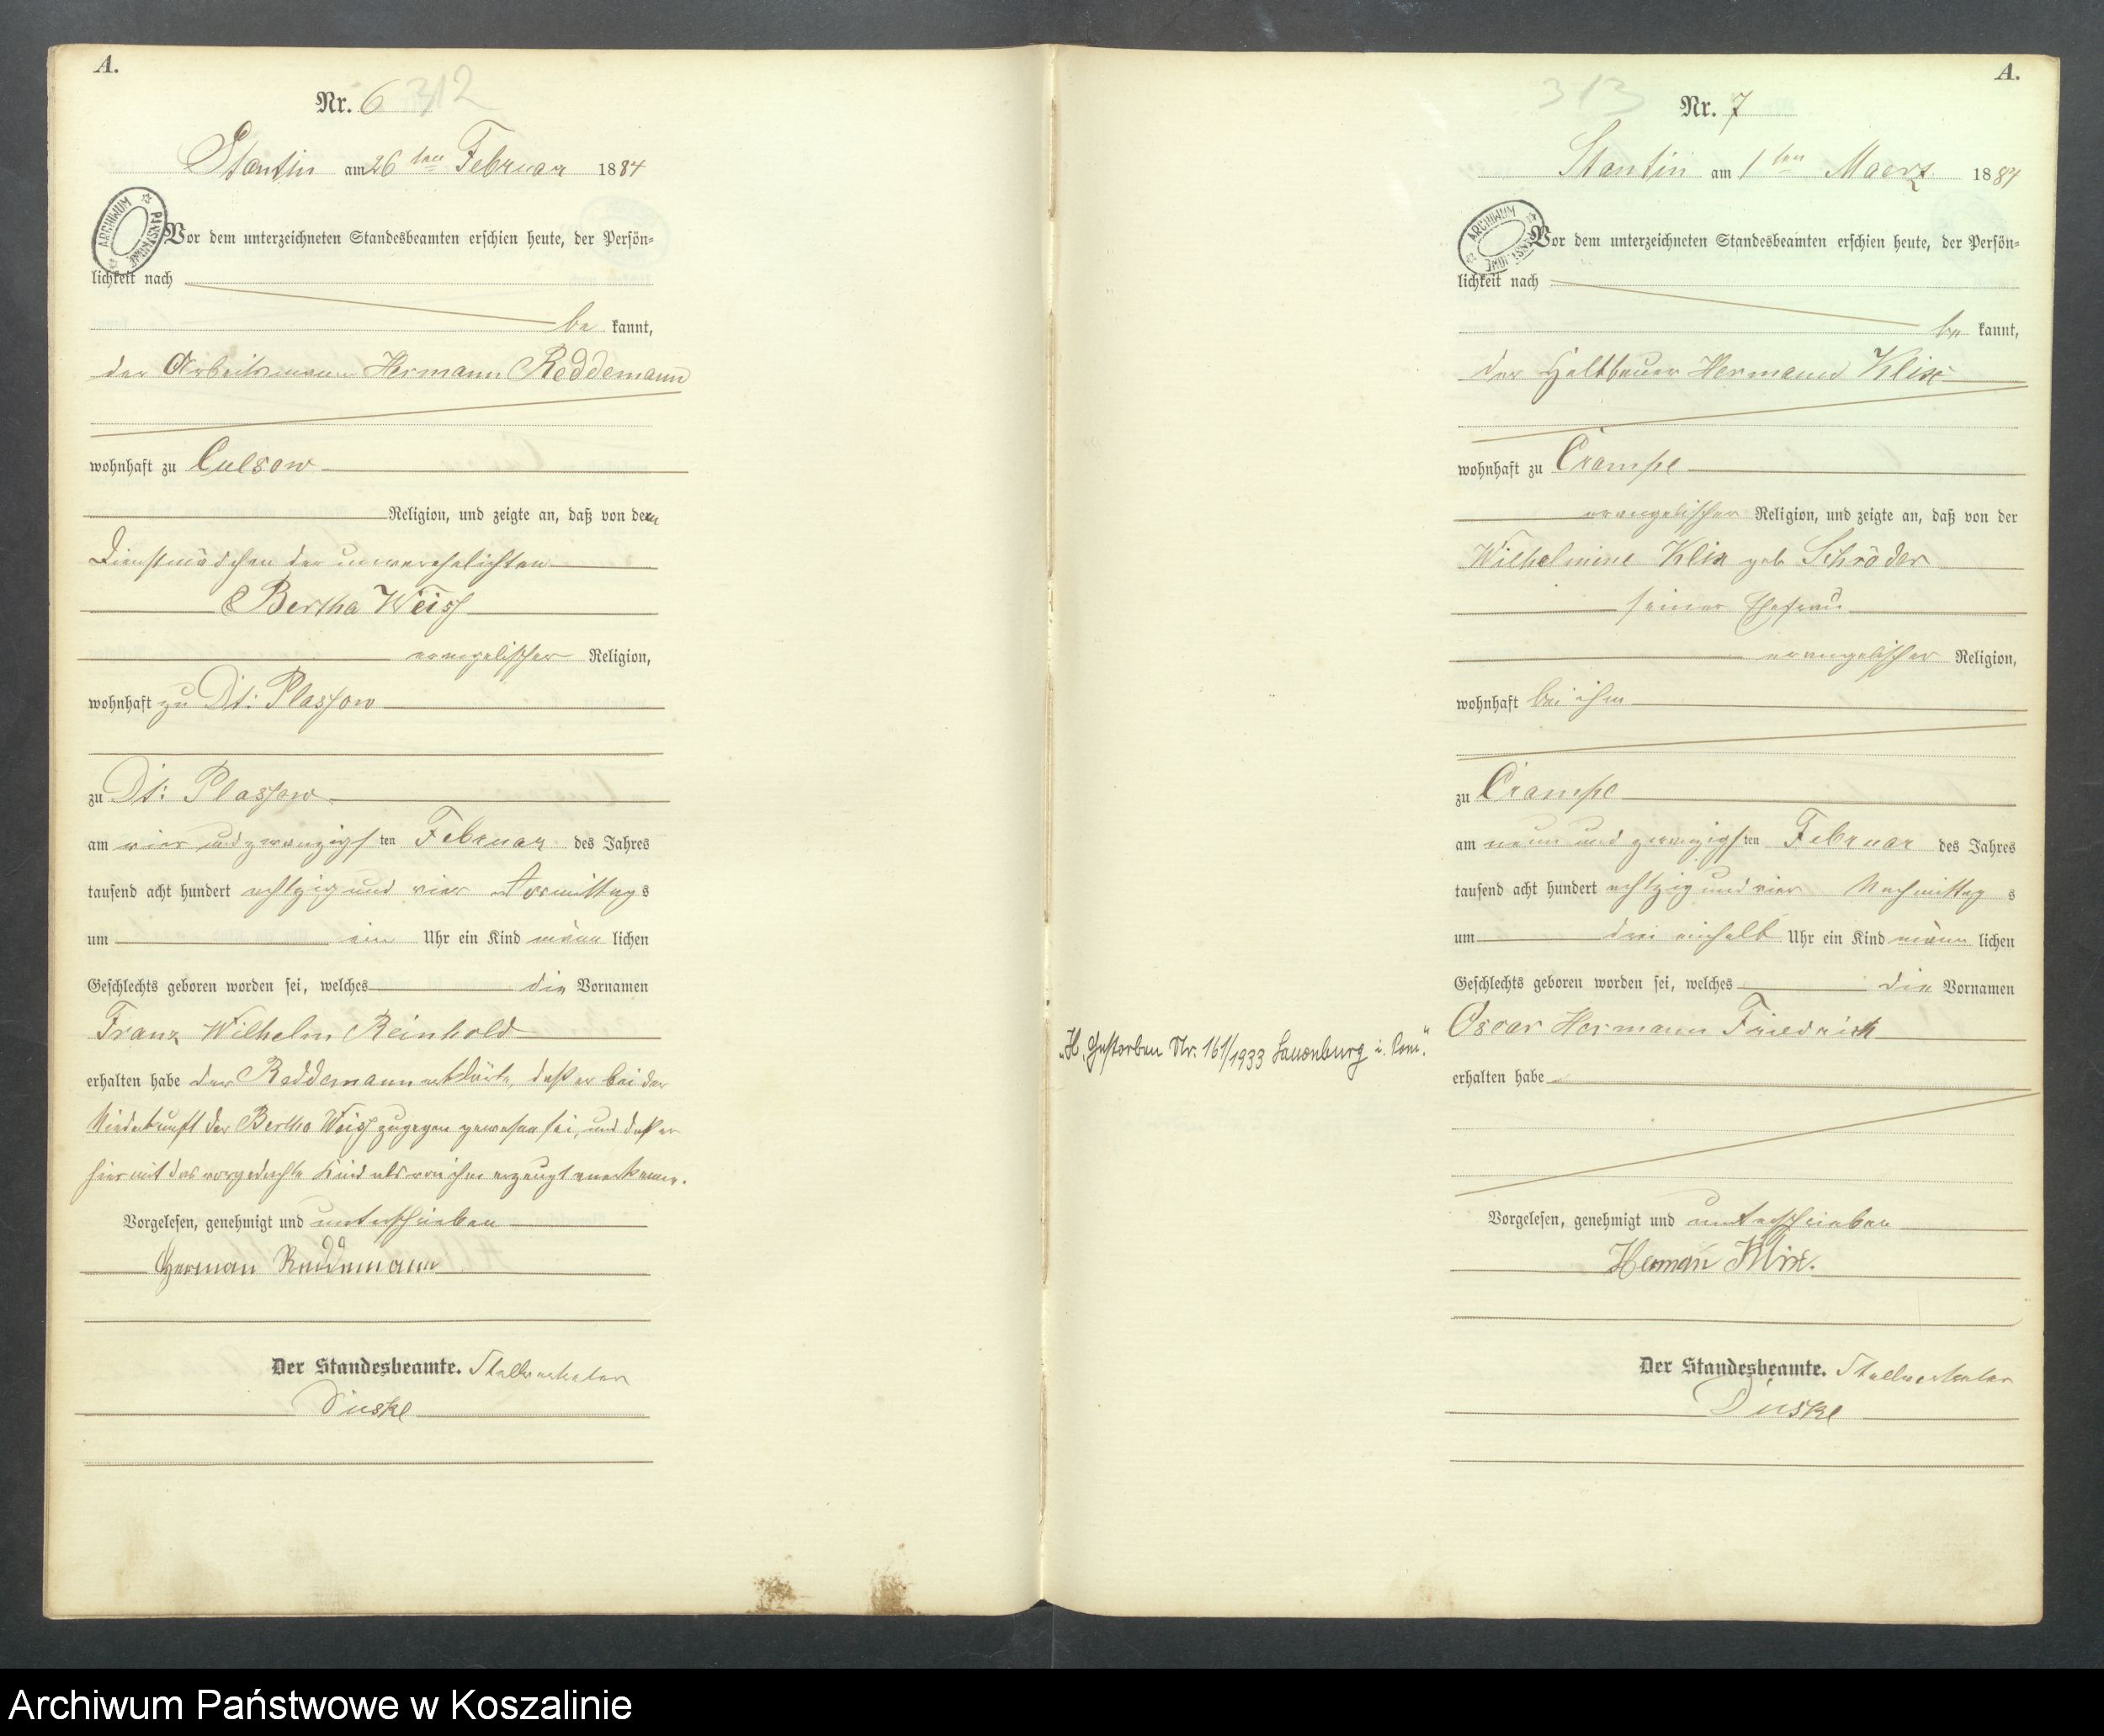 A.
Nr. 6 312
Stantin am 26 ten Februar 1884
ARCHIWUM PAŃSTWOWE
Vor dem unterzeichneten Standesbeamten erschien heute, der Persön-
lichkeit nach
be kannt,
der Arbeitsmann Hermann Reddemann
wohnhaft zu Culsow
Religion, und zeigte an, daß von dem
Dienstmädchen der unverehelichten
Bertha Weiss
evangelischer Religion,
wohnhaft zu Dt: Plassow
zu Dt: Plassow
am vier und zwanzigsten Februar des Jahres
tausend acht hundert achtzig und vier Vormittags
um ein Uhr ein Kind männlichen
Geschlechts geboren worden sei, welches die Vornamen
Franz Wilhelm Reinhold
erhalten habe der Reddemann erklärte, daß er bei der
Niederkunft der Bertha Weiss zugegen gewesen sei, und daß er
hiermit das vorgedachte Kind als von ihm erzeugt anerkenne.
Vorgelesen, genehmigt und unterschrieben
Herman Reddemann
Der Standesbeamte. Stellvertreter
Duske
A.
313 Nr. 7
Stantin am 1 ten Maerz 1884
ARCHIWUM PAŃSTWOWE
Vor dem unterzeichneten Standesbeamten erschien heute, der Persön-
lichkeit nach
be kannt,
der Hermann Klix
wohnhaft zu Crampe
evangelischer Religion, und zeigte an, daß von der
Wilhelmine Klix geb Schröder
seiner Ehefrau
evangelischer Religion,
wohnhaft bei ihm
zu Crampe
am neun und zwanzigsten Februar des Jahres
tausend acht hundert achtzig und vier Nachmittags
um drei einhalb Uhr ein Kind männlichen
Geschlechts geboren worden sei, welches die Vornamen
Oscar Hermann Friedrich
erhalten habe
„H. Gestorben Nr. 161/1933 Lauenburg i. Pom."
Vorgelesen, genehmigt und unterschrieben
Herman Klix.
Der Standesbeamte. Stellvertreter
Duske
Archiwum Państwowe w Koszalinie